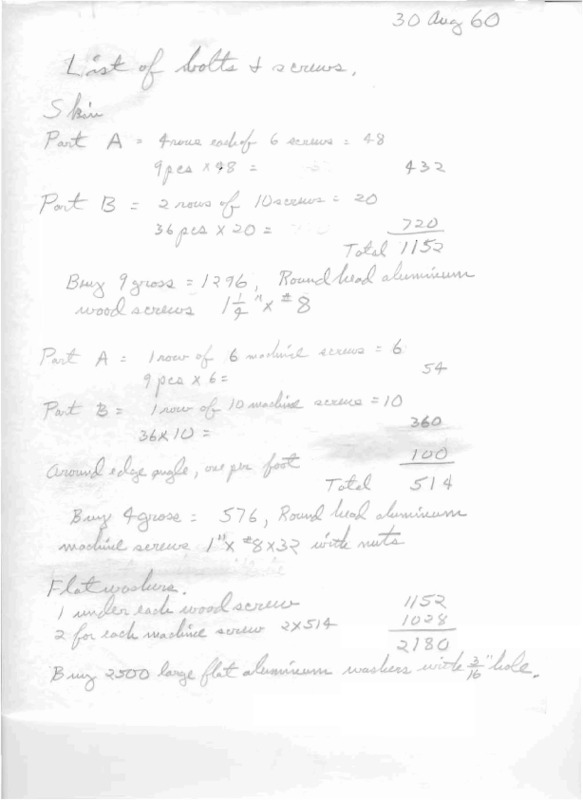 30 Aug 60
List of bolts & screws.
Skin
Part A = 4 rows each of 6 screws = 48
9 pcs × 48 = 432
Part B = 2 rows of 10 screws = 20
36 pcs × 20 = 720
Total 1152
Buy 9 gross = 1296, Round head aluminum
wood screws 1 1/4" × #8
Part A = 1 row of 6 machine screws = 6
9 pcs × 6 = 54
Part B = 1 row of 10 machine screws = 10
36 × 10 = 360
Around edge angle, one per foot 100
Total 514
Buy 4 gross = 576, Round head aluminum
machine screws 1" × #8×32 with nuts
Flat washers.
1 under each wood screw 1152
2 for each machine screw 2×514 1028
2180
Buy 2500 large flat aluminum washers with 3/16" hole.